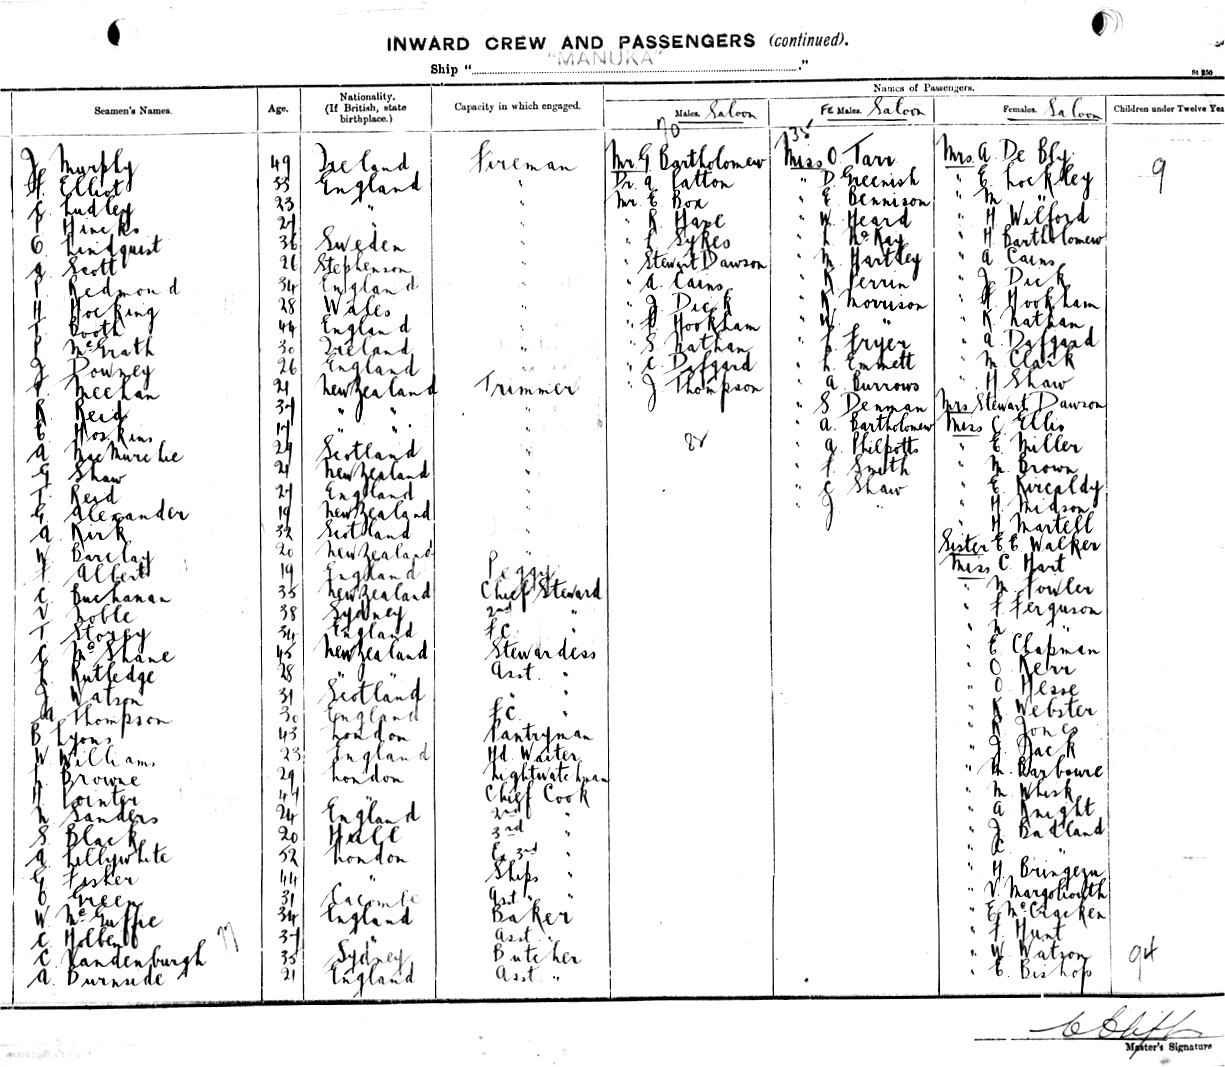 INWARD CREW AND PASSENGERS (continued).
Ship "MANUKA"
Seamen's Names. Age. Nationality. (If British, state birthplace.) Capacity in which engaged. Names of Passengers.
Males. Saloon FEMales. Saloon Females. Saloon Children under Twelve Yea
70 35
J Murphy 49 Ireland Fireman Mr G Bartholomew Miss O. Tarr Mrs. A. De Bly 9
H. Elliot 33 England " Dr. A. Patton " D Greenish " E Lockley
C. Ludley 23 " " Mr E Box " E Bennison " M "
P Hincks 27 " " " R Hape " W Heard " H Wilford
O. Lindquist 36 Sweden " " L Sykes " L McKay " H Bartholomew
A Scott 26 Stephenson " " Stewart Dawson " M Hartley " A Cains
P Redmond 34 England " " A. Cains " R Perrin " J Dick
H Hocking 28 Wales " " J Dick " K Morrison " H Hookham
T. Booth 44 England " " H Hookham " W. " " K Nathan
P McGrath 30 Ireland " " S Nathan " L Fryer " A Dafgard
J Downey 26 England " " C Dafgard " L Emmett " M Clark
P Meehan 21 New Zealand Trimmer " J Thompson " A Burrows " H Shaw
R Reid 37 " " " " S Denman Mrs Stewart Dawson
C Hoskins 17 " " " 82 " A. Bartholomew Miss C Ellis
A McMurchie 29 Scotland " " A Philpotts " E Miller
G Shaw 21 New Zealand " " F Smith " M Brown
T. Reid 27 England " " C Shaw " E Kircaldy
G Alexander 19 New Zealand " " J " " H Midson
A Kirk 32 Scotland " " H Martell
W Barclay 20 New Zealand " Sister E E Walker
F Albert 19 England Peggy Miss C Hart
C Buchanan 35 New Zealand Chief Steward " M Fowler
V Noble 38 Sydney 2nd " " F Ferguson
T Storey 34 England F.C. " " M "
C McShane 45 New Zealand Stewardess " E Chapman
L Rutledge 28 " " Asst. " " O Kerr
J Watson 31 Scotland " " " O Hesse
M Thompson 30 England F.C. " " K Webster
B Lyons 43 London Pantryman " R Jones
W Williams 23 England Hd. Waiter " J Jack
L Browne 29 London Nightwatchman " M Barboure
H Pointer 47 " Chief Cook " M Whisk
N Sanders 24 England 2nd " " A Knight
S. Black 20 Hull 3rd " " J Badland
A Lillywhite 52 London Ex 3rd " " C "
G Fisher 44 " Ships " " H Bringezu
O Green 31 Asst " " " V Margoliouth
W McGuffie 34 England Baker " E McCracken
C Holben 37 " Asst " " F Hunt
C Vandenburgh 77 35 Sydney Butcher " W Watson 94
A. Burnside 21 England Asst " " E Bishop
Master's Signature